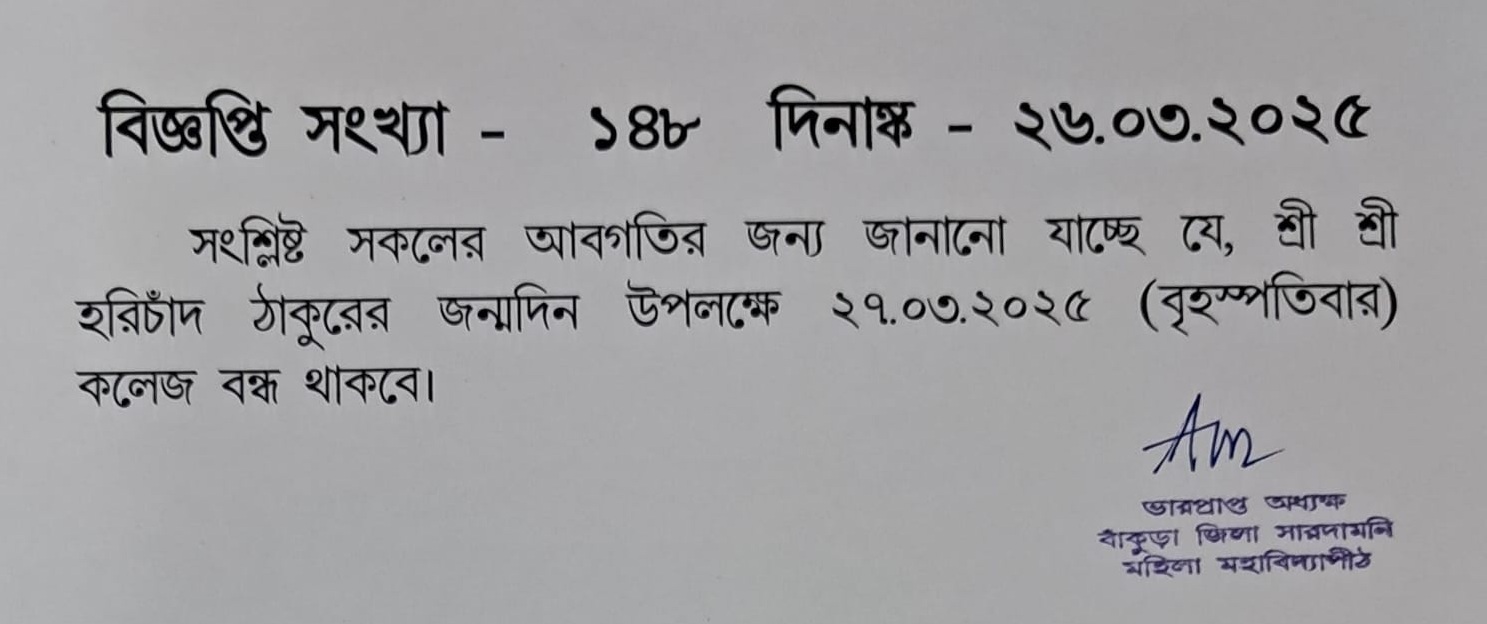 বিজ্ঞপ্তি সংখ্যা - ১৪৮ দিনাঙ্ক - ২৬.০৩.২০২৫
সংশ্লিষ্ট সকলের আবগতির জন্য জানানো যাচ্ছে যে, শ্রী শ্রী
হরিচাঁদ ঠাকুরের জন্মদিন উপলক্ষে ২৭.০৩.২০২৫ (বৃহস্পতিবার)
কলেজ বন্ধ থাকবে।
ভারপ্রাপ্ত অধ্যক্ষ
বাঁকুড়া জিলা সারদামনি
মহিলা মহাবিদ্যাপীঠ